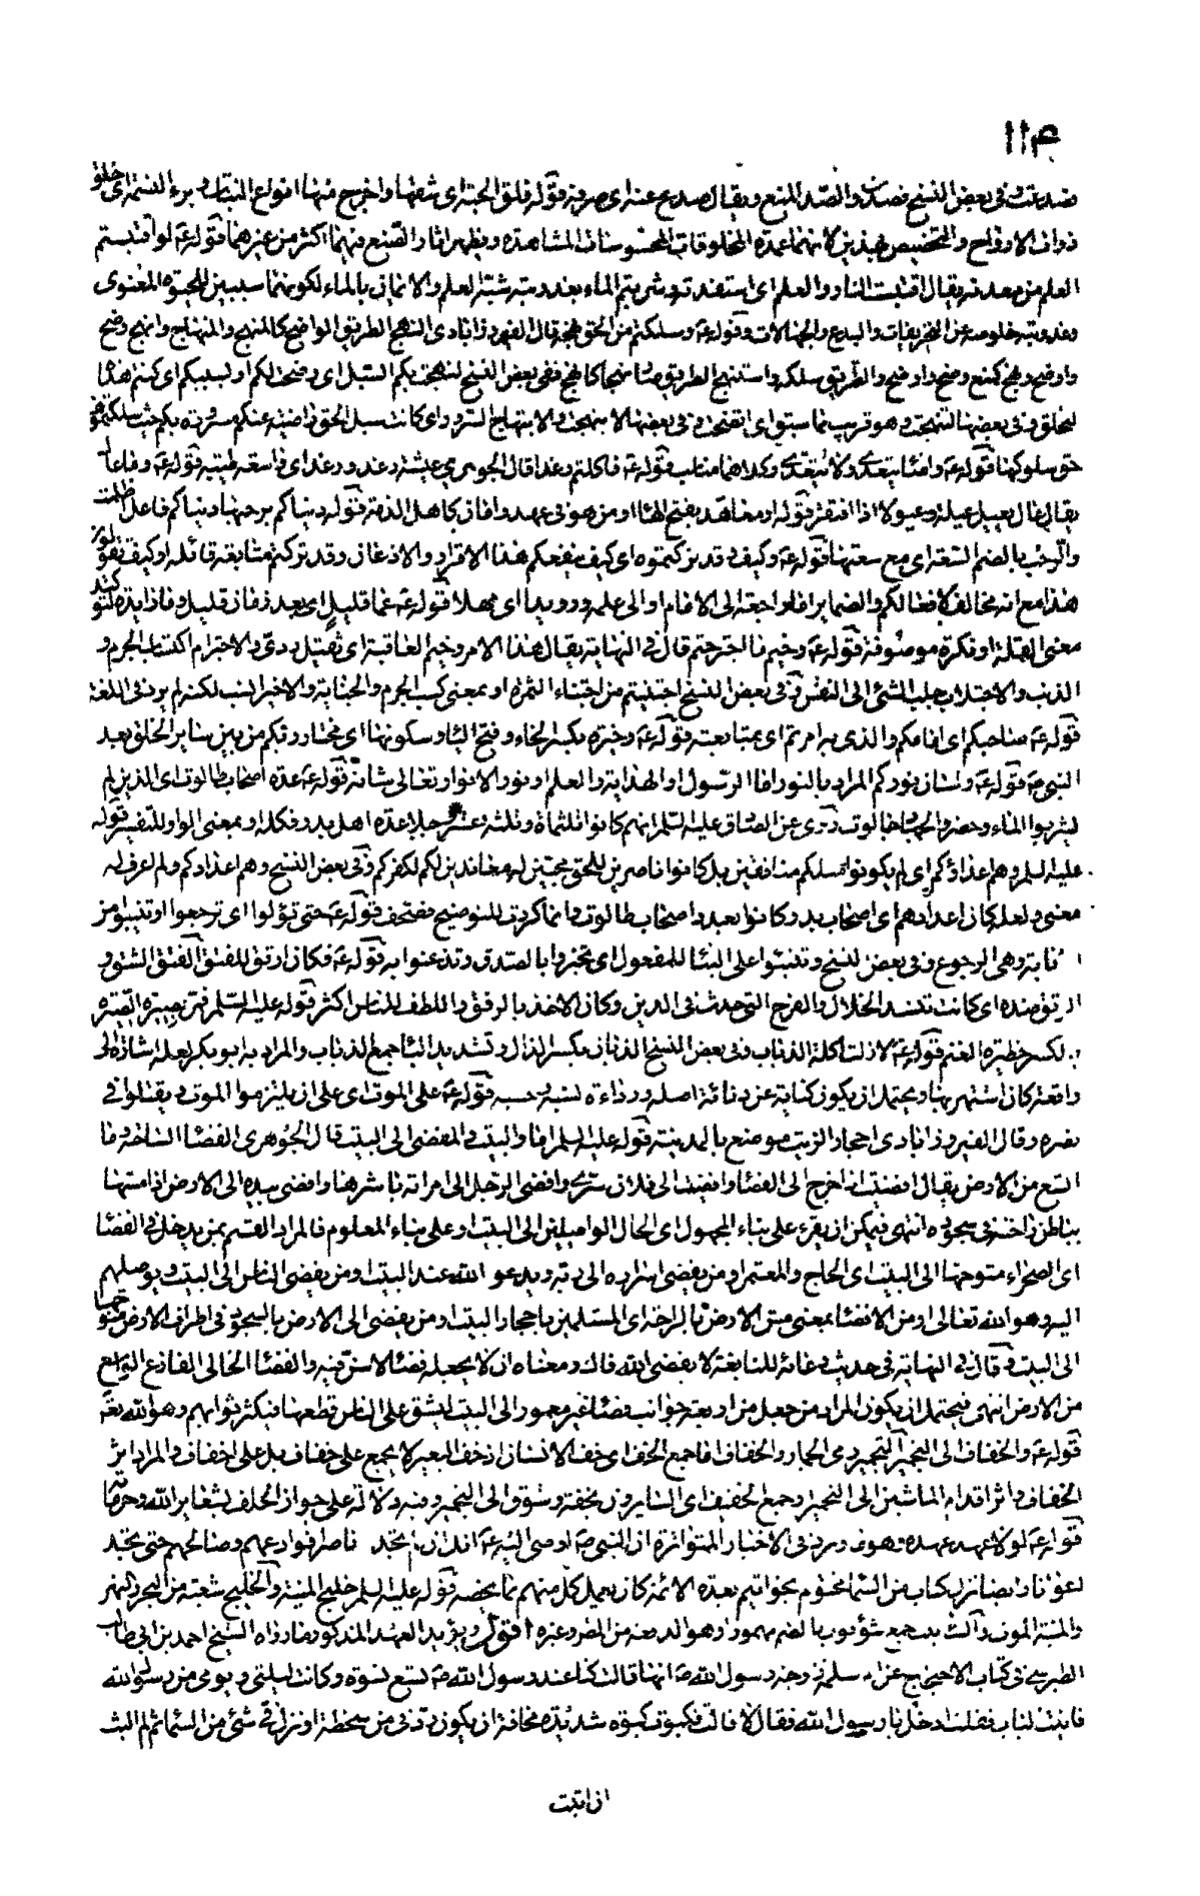 ١١٣
فصدعت وفى بعض النسخ فصددت والصّد المنع ويقال صدع عنه اى صرفه قوله فلق الحبّة اى شقها واخرج منها انواع النبات وبرء النسمة اى خلق
ذوات الارواح والتخصيص بهذين لانهما عمدة المخلوقات المحسوسات المشاهدة ويظهر اثار الصّنع فيهما اكثر من غيرهما قوله ع لو اقتبستم
العلم من معدنه يقال اقتبست النار والعلم اى استفدته وشربتم الماء بعذوبته شبّه العلم والايمان بالماء لكونهما سببين للحيوة المعنوى
وعذوبته خلوصه عن التحريفات والبدع والجهالات وقوله ع وسلكتم من الحق نهجه قال الفيروزابادى النهج الطريق الواضح كالمنهج والمنهاج وانهج وضح
واوضح ونهج كمنع وضح واوضح والطريق سلكه واستنهج الطريق صار نهجا كانهج ففى بعض النسخ لنهجت بكم السّبل اى وضحت لكم او بسببكم اى كنتم هداة
للخلق وفى بعضها لتنهجت وهو قريب مما سبق اى اتضحت وفى بعضها لابتهجت والابتهاج السّرور اى كانت سبل الحق راضية عنكم مسرورة بكم حيث سلكتموها
حق سلوكها قوله ع وامنا يتعدى ولا يتعدى وكلاهما مناسب قوله ع فاكلتم رغدا قال الجوهرى عيشة رغد ورغد اى واسعة طيبة قوله ع وما عال
يقال عال يعيل عيلة وعيولا اذا افتقر قوله او معاهد بفتح الهاء اى من هو فى عهد وامان كاهل الذمة قوله دنياكم برحبها دنياكم فاعل ظلمت
والرحب بالضم السّعة اى مع سعتها قوله ع وكيف وقد تركتموه اى كيف ينفعكم هذا الاقرار والاذعان وقد تركتم متابعة قائله او كيف تقولون
هذا مع انه مخالف لافعالكم والضماير اما راجعة الى الامام او الى علمه ورويدا اى مهلا قوله ع عما قليل اى بعد زمان قليل وما زايدة لتوكيد
معنى القلة او نكرة موصوفة قوله ع وخيم ما اجترمتم قال فى النهاية يقال هذا الامر وخيم العاقبة اى ثقيل ردى والاجترام اكتساب الجرم و
الذنب والاجتلاب جلب الشئ الى النفس وفى بعض النسخ اجتنيتم من اجتناء الثمرة او بمعنى كسب الجرم والجناية والاخير انسب لكنه لم يرد فى اللغة
قوله ع صاحبكم اى امامكم والذى به امرتم اى بمتابعته قوله ع وخيرة بكسر الخاء وفتح الياء وسكونها اى مختار ربكم من بين ساير الخلق بعد
النبى ص قوله ع ولسان نوركم المراد بالنور اما الرسول او الهداية والعلم او نور الانوار تعالى شانه قوله ع عدة اصحاب طالوت اى الذين لم
يشربوا الماء وحضروا لجهاد جالوت وروى عن الصادق عليه السّلم انهم كانوا ثلثماة وثلثة عشر رجلا عدة اهل بدر فكلمة او بمعنى الواو للتفسير قوله
عليه السلم وهم اعداؤكم اى لم يكونوا مثلكم منافقين بل كانوا ناصرين للحق محبّين له معاندين لكم لكفركم وفى بعض النسخ وهم اعدادكم ولم اعرف له
معنى ولعله كان اعدادهم اى اصحاب بدر وكانوا بعدد اصحاب طالوت وانما كررت للتوضيح فصحف قوله ع حتى تؤلوا اى ترجعوا او تنيبوا من
الانابة وهى الرجوع وفى بعض النسخ وتنبئوا على البناء للمفعول اى تخبروا بالصدق وتذعنوا به قوله ع فكان ارتق للفتق الفتق الشق و
الرتق ضده اى كانت تنسد الخلال والفرج التى حدثت فى الدين وكان الاخذ بالرفق واللطف للناس اكثر قوله عليه السّلم فمر بصيرة الصّيرة
بالكسر حظيرة الغنم قوله ع لازلت اكلة الذباب وفى بعض النسخ الذبان بكسر الذال وتشديد الباء جمع الذباب والمراد به ابو بكر لعله اشارة الى
واقعة كان اشتهر بها ويحتمل ان يكون كناية عن دنائة اصله ورذاءة نسبه وحسبه قوله ع على الموت اى على ان يلتزموا الموت ويقتلوا فى
نصره وقال الفيروزابادى احجار الزيت موضع بالمدينة قوله عليه السلم اما والبيت والمفضى الى البيت قال الجوهرى الفضاء الساحة وما
اتسع من الارض يقال افضيت اذا خرجت الى الفضاء وافضيت الى فلان سّرى وافضى الرّجل الى امراته باشرها وافضى بيده الى الارض اذا مسّها
بباطن راحته فى سجوده انتهى فيمكن ان يقرء على بناء المجهول اى الحال الواصلين الى البيت او على بناء المعلوم فالمراد القسم بمن يدخل فى الفضاء
اى الصحراء متوجها الى البيت اى الحاج والمعتمر او من يفضى اسراره الى ربه ويدعو الله عند البيت او من يفضى الناس الى البيت ويوصلهم
اليه وهو الله تعالى او من الافضاء بمعنى مسّ الارض بالراحة اى المستلمين باحجار البيت او من يفضى الى الارض بالسجود فى اطراف الارض متوجها
الى البيت وقال فى النهاية فى حديث دعائه للنابغة لا يفضى الله فاك ومعناه ان لا يجعله فضاء لا سنّ فيه والفضاء الخالى الفارغ الواسع
من الارض انتهى فيحتمل ان يكون المراد من جعل من اربعة جوانبه فضاء غير معمور الى البيت ليشق على الناس قطعها فيكثر ثوابهم وهو الله تعه
قوله ع والخفاف الى التجمير التجمير رمى الجمار والخفاف اما جمع الخف اى خف الانسان اذ خف البعير لا يجمع على خفاف بل على اخفاف والمراد اثر
الخفاف واثر اقدام الماشين الى التجمير او جمع الخفيف اى السّايرون بخفة وشوق الى التجمير وفيه دلالة على جواز الحلف بشعاير الله وحرماته
قوله ع لولا عهد عهده هو ما ورد فى الاخبار المتواترة ان النبى ص اوصى اليه ع انك ان لم تجد ناصرا فوادعهم وصالحهم حتى تجد
اعوانا وايضا نزل كتاب من السّماء مختوم بخواتيم بعدد الائمة كان يعمل كل منهم بما يخصه قوله عليه السلم خليج المنية والخليج شعبة من البحر والنهر
والمنية الموت والشابيب جمع شؤبوب بالضم مهموزا وهو الدفعة من المطر وغيره اقول ويؤيد العهد المذكور ما رواه الشيخ احمد بن ابى طالب
الطبرسى فى كتاب الاحتجاج عن ام سلمة زوجة رسول الله ص انها قالت كنا عند رسول الله ص تسع نسوة وكانت ليلتى ويومى من رسول الله
فاتيت الباب فقلت ادخل يا رسول الله فقال لا قالت فكبوت كبوة شديدة مخافة ان يكون ردنى من سخطة او نزل فى شئ من السّماء ثم لم البث
ان اتيت